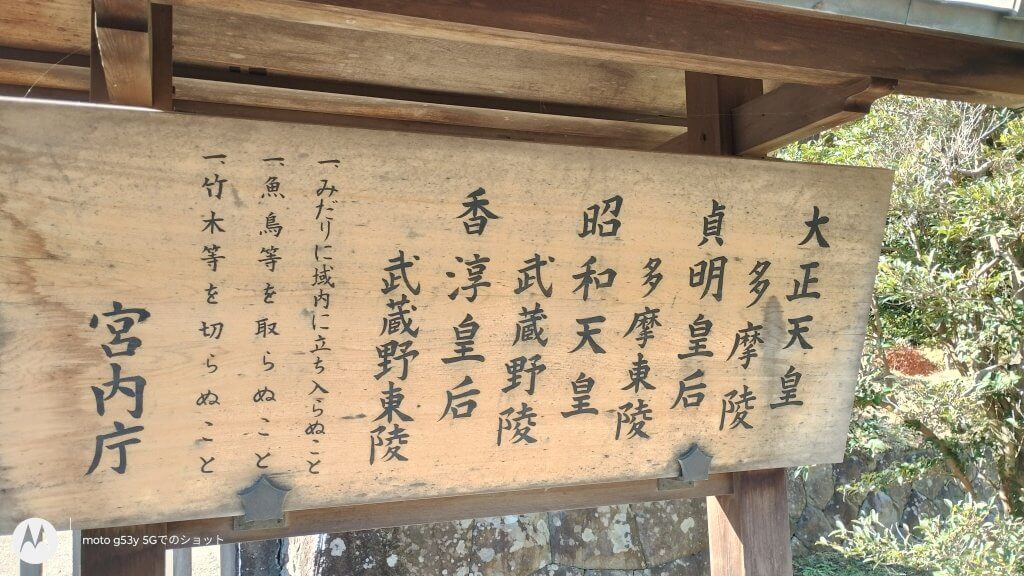 大正天皇
多摩陵
貞明皇后
多摩東陵
昭和天皇
武蔵野陵
香淳皇后
武蔵野東陵
一、みだりに域内に立ち入らぬこと
一、魚鳥等を取らぬこと
一、竹木等を切らぬこと
宮内庁
moto g53y 5Gでのショット